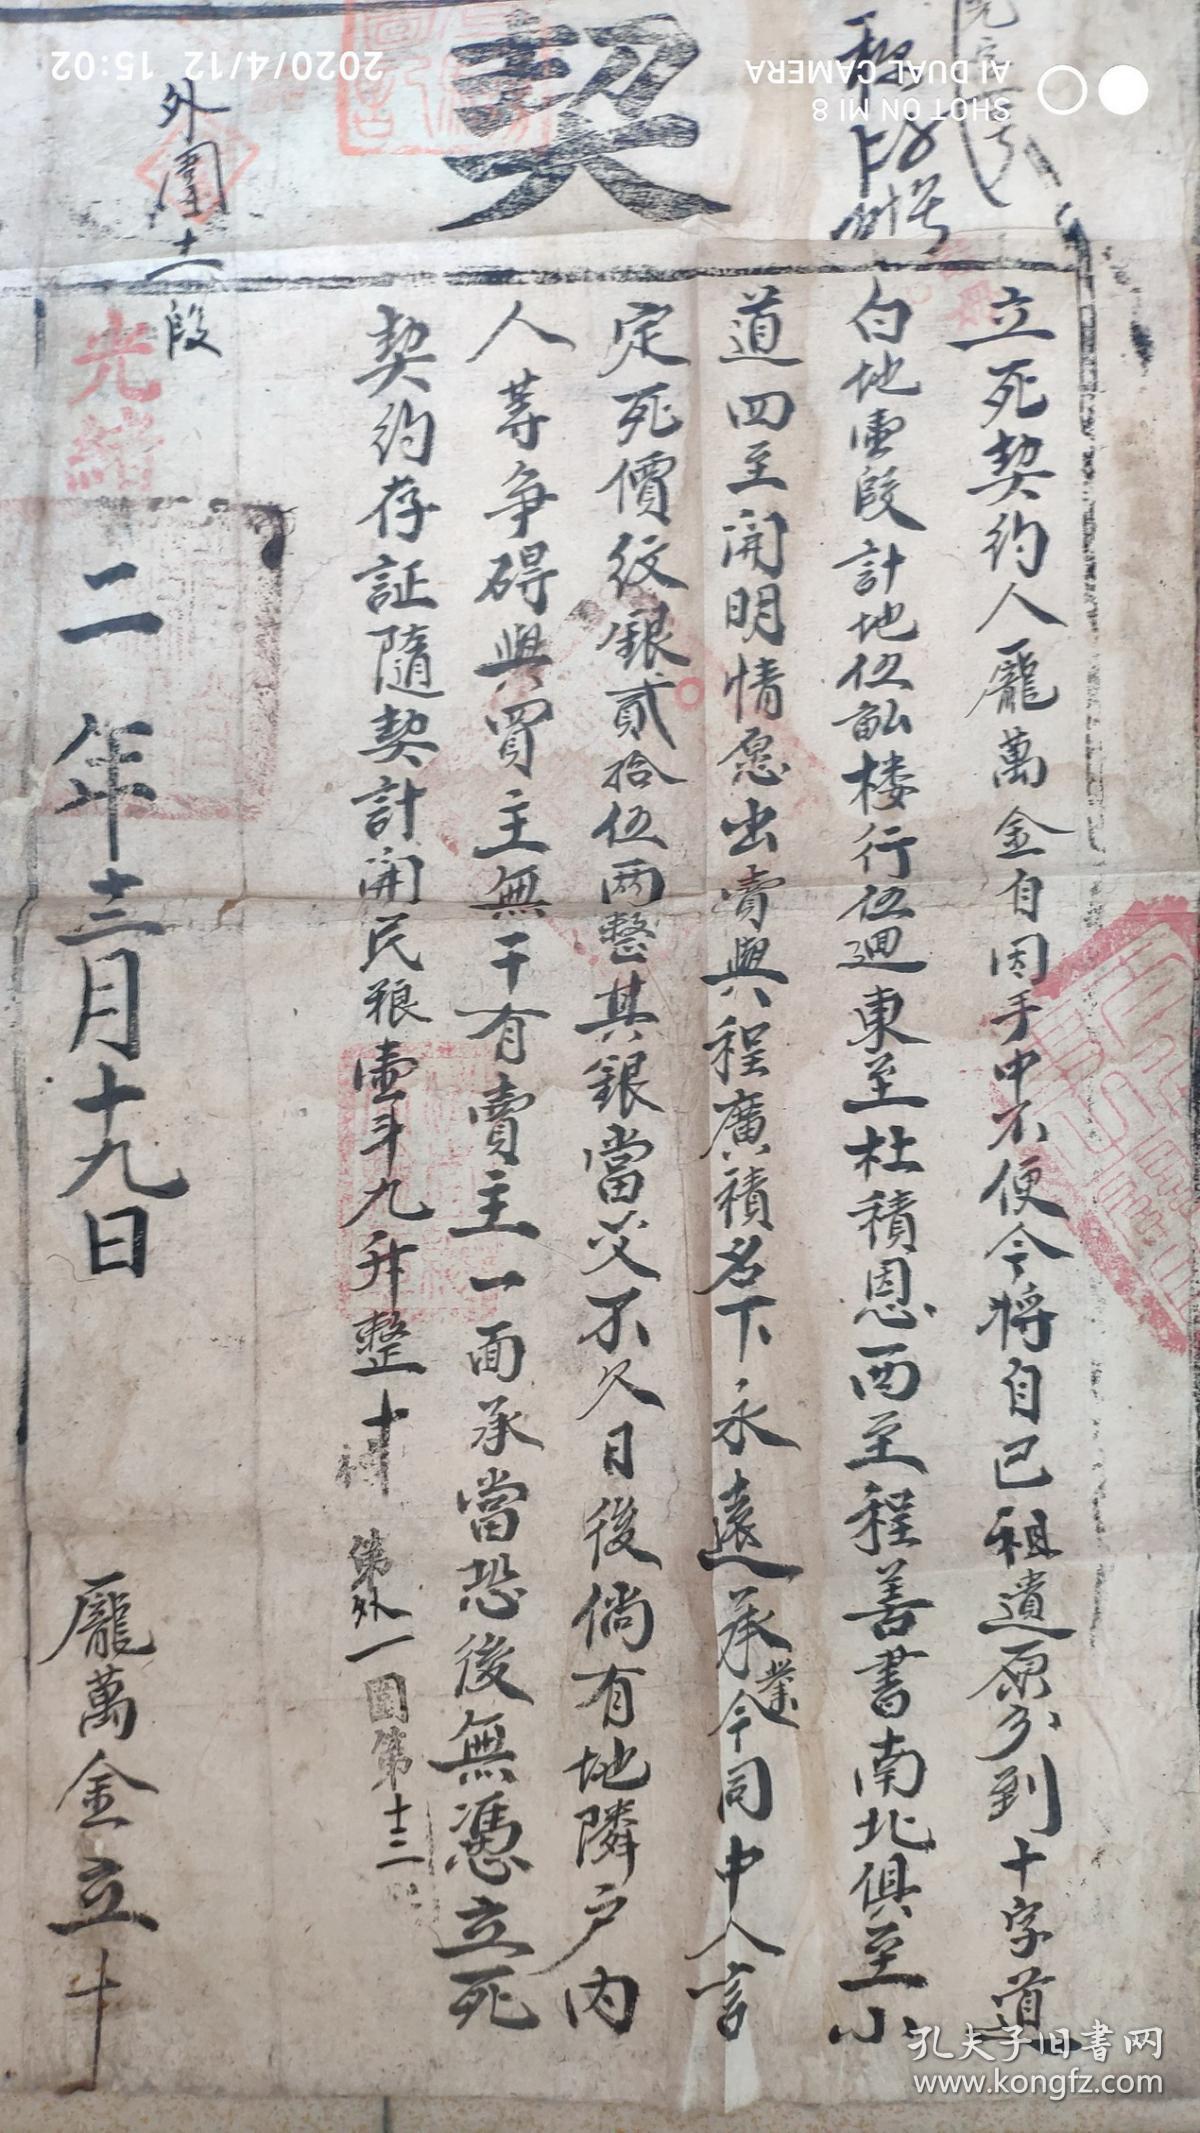 契
立死契約人龐萬金自因手中不便今將自己祖遺原分到十字道
白地壹段計地伍畝楼行伍迴東至杜積恩西至程善書南北俱至小
道四至開明情愿出賣與程廣積名下永遠承業今同中人言
定死價紋銀貳拾伍兩整其銀當交不欠日後倘有地隣户内
人等争碍與買主無干有賣主一面承當恐後無憑立死
契約存証隨契計開民粮壹斗九升整十
第外一圖第十三
光緒二年十二月十九日 龐萬金立十
外圍十一段
SHOT ON MI 8
AI DUAL CAMERA
2020/4/12 15:02
孔夫子旧書网
www.kongfz.com